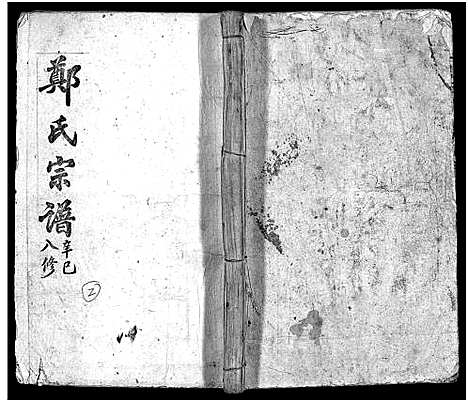 鄭氏宗譜
辛巳
八修
2